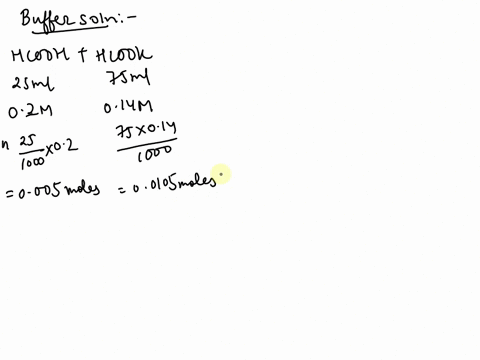 Buffer soln:-
HCOOH + HCOOK
25ml 75ml
0.2M 0.14M
n 25/1000 × 0.2 75×0.14/1000
= 0.005 moles = 0.0105 moles